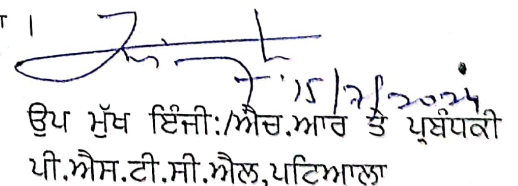 15/7/2024
ਉਪ ਮੁੱਖ ਇੰਜੀ:/ਐਚ.ਆਰ ਤੇ ਪ੍ਰਬੰਧਕੀ
ਪੀ.ਐਸ.ਟੀ.ਸੀ.ਐਲ,ਪਟਿਆਲਾ